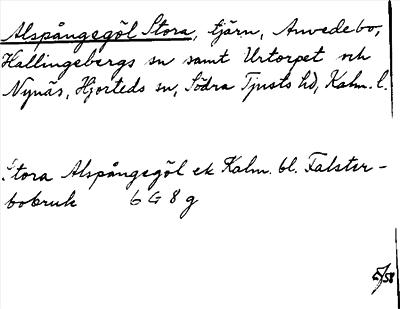 Alspångegöl Stora, tjärn, Anvedebo,
Hallingebergs sn samt Urtorpet och
Nynäs, Hjorteds sn, Södra Tjusts hd, Kalm. l.
Stora Alspångegöl ek Kalm. bl. Falster-
bobruk 6 G 8 g
/58